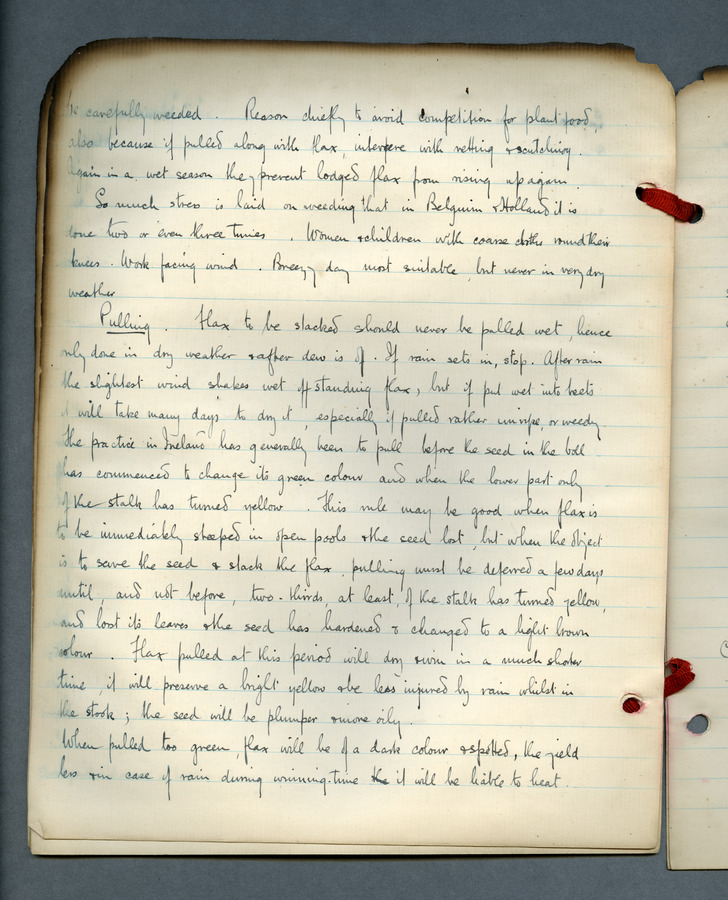 be carefully weeded. Reason chiefly to avoid competition for plant food,
also because if pulled along with flax, interfere with retting & scutching.
Again in a wet season they prevent lodged flax from rising up again.
So much stress is laid on weeding that in Belguim & Holland it is
done two or even three times. Women & children with coarse cloths round their
knees. Work facing wind. Breezy day most suitable, but never in very dry
weather
Pulling. Flax to be stacked should never be pulled wet, hence
only done in dry weather & after dew is of. If rain sets in, stop. After rain
the slightest wind shakes wet off standing flax, but if put wet into beets
it will take many days to dry it, especially if pulled rather unripe, or weedy
The practice in Ireland has generally been to pull before the seed in the boll
has commenced to change its green colour and when the lower part only
of the stalk has turned yellow. This rule may be good when flax is
to be immediately steeped in open pools & the seed lost, but when the object
is to save the seed & stack the flax, pulling must be deferred a few days
until, and not before, two-thirds, at least, of the stalk has turned yellow,
and lost its leaves & the seed has hardened & changed to a light brown
colour. Flax pulled at this period will dry & win in a much shorter
time, it will preserve a bright yellow & be less injured by rain whilst in
the stook; the seed will be plumper & more oily.
When pulled too green, flax will be of a dark colour & spotted, the yield
less & in case of rain during winning-time the it will be liable to heat.